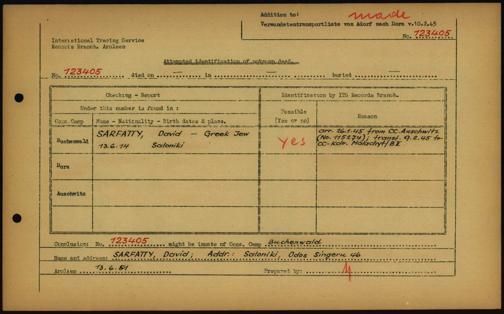 Addition to: made
Verwundetentransportliste von Adorf nach Dora v.10.2.45
No. 123405
International Tracing Service
Records Branch, Arolsen
Attempted identification of unknown dead.
No. 123405 died on — in — buried —
Checking - Report
Identification by ITS Records Branch.
Under this number is found in :
Possible
(Yes or no)
Reason
Conc. Camp
Name - Nationality - Birth dates & place.
Buchenwald
SARFATTY, David — Greek Jew
13.6.14 Saloniki
yes
arr. 26.1.45 from CC. Auschwitz
(No. 115274); transf. 9.2.45 to
CC-Kdr.
Dora
Auschwitz
Conclusion: No. 123405 might be inmate of Conc. Camp Buchenwald
Name and address: SARFATTY, David; Addr.: Saloniki, Odos Singeru 46
Arolsen 13.6.51 Prepared by: